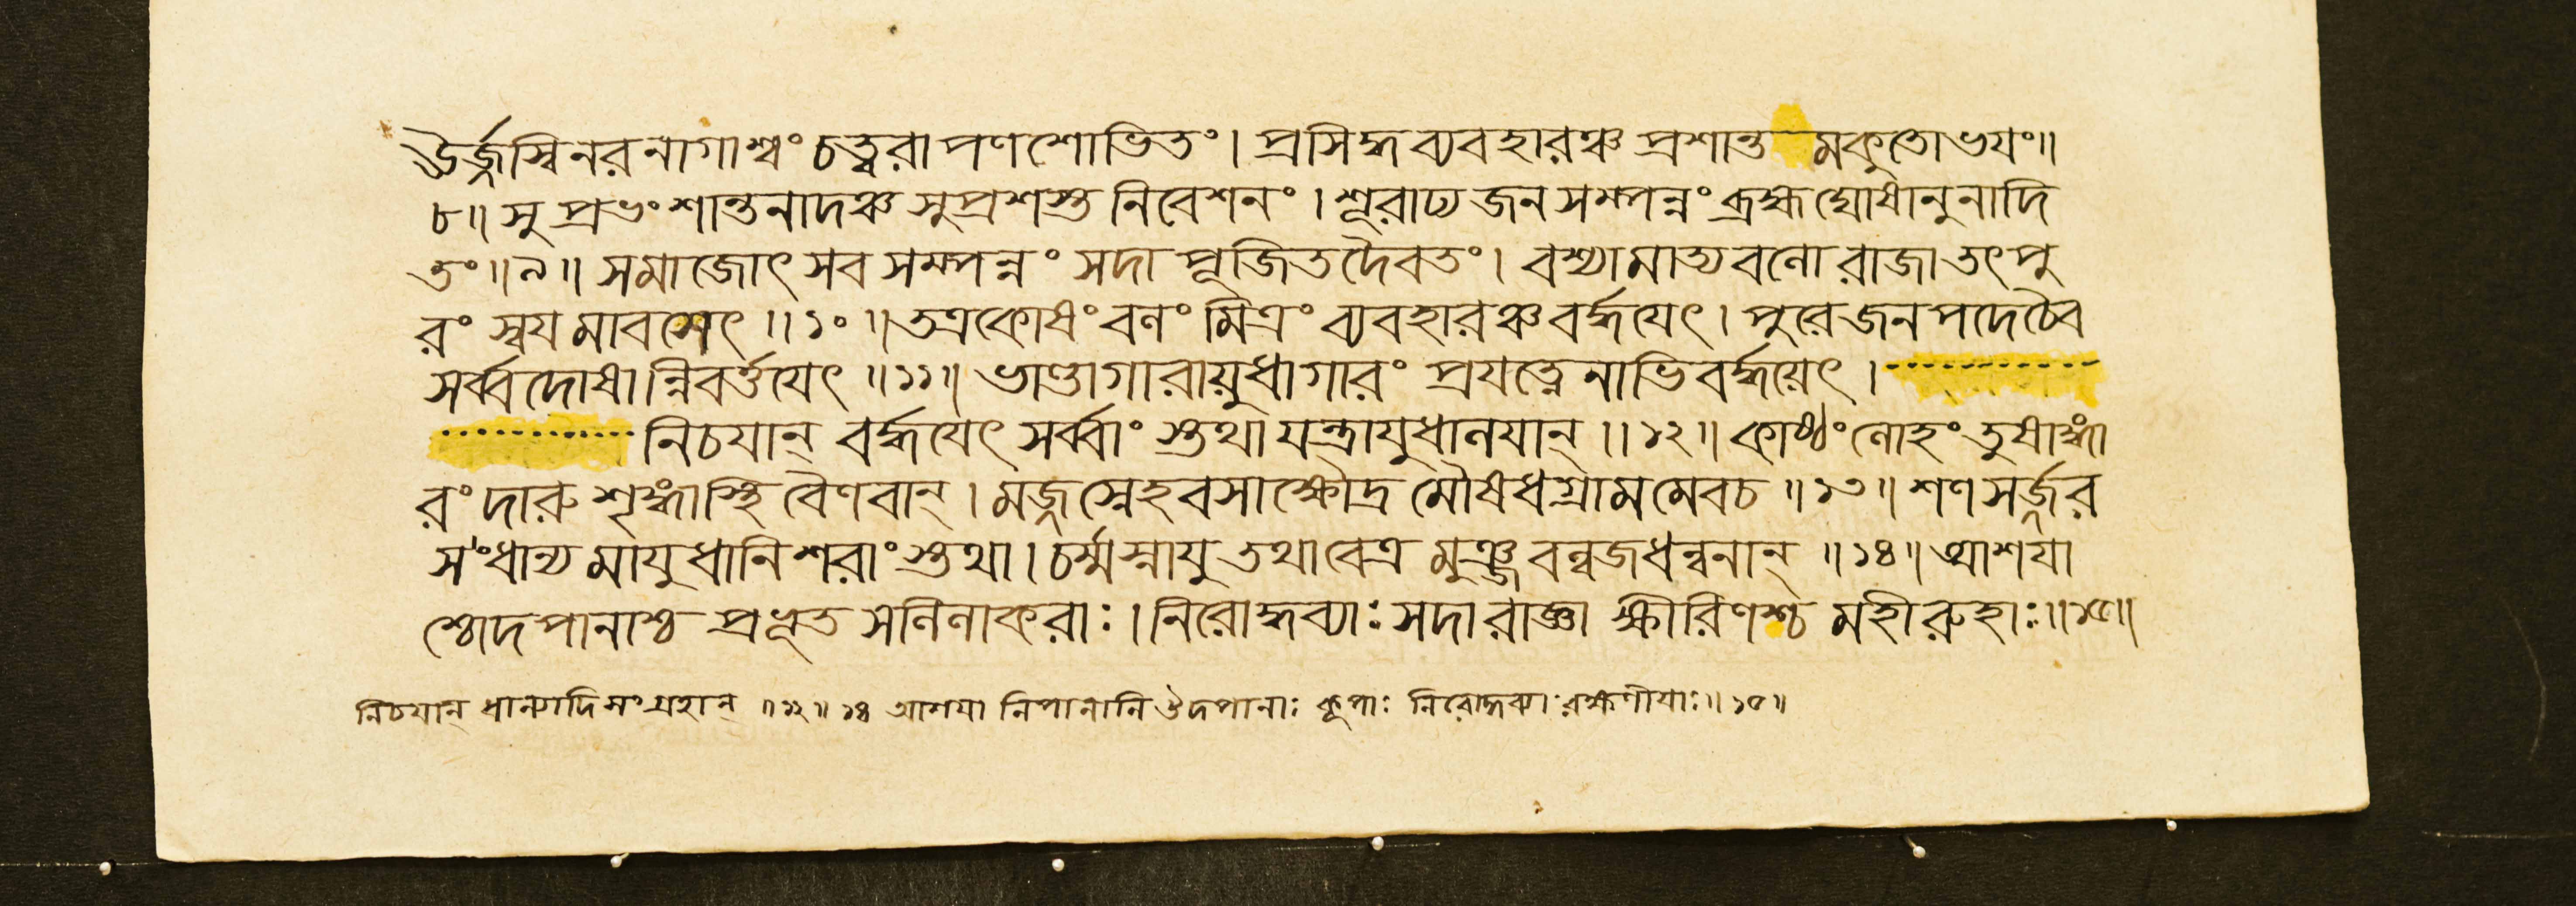 ঊর্জ্জস্বিনরনাগাশ্বং চত্ত্বরাপণশোভিতং। প্রসিদ্ধব্যবহারঞ্চ প্রশান্ত মকুতোভযং॥
৮॥ সুপ্রভং শান্তনাদঞ্চ সুপ্রশস্তনিবেশনং। শূরাঢ্যজনসম্পন্নং ব্রহ্মঘোষানুনাদি
তং॥৯॥ সমাজোৎসবসম্পন্নং সদা পূজিতদৈবতং। বশ্যামাত্যবলো রাজা তৎ পু
রং স্বযমাবসেৎ॥১০॥ তত্রকোষং বলং মিত্রং ব্যবহারঞ্চ বর্দ্ধযেৎ। পুরে জনপদে চৈব
সর্ব্বদোষান্নিবর্ত্তযেৎ॥১১॥ ভাণ্ডাগারায়ুধাগারং প্রযত্নেনাভিবর্দ্ধয়েৎ।
নিচযান্ বর্দ্ধযেৎ সর্ব্বাংস্তথা যন্ত্রাযুধালযান্॥১২॥ কাষ্ঠং লোহং তুষাঙ্গা
রং দারুশৃঙ্গাস্থিবৈণবান্। মজ্জস্নেহবসাক্ষৌদ্রমৌষধগ্রামমেবচ॥১৩॥ শণসর্জ্জর
সংধান্যমাযুধানি শরাংস্তথা। চর্ম্মস্নাযু তথা বেত্র মুঞ্জবল্বজধন্বনান্॥১৪॥ আশযা
শ্চোদপানাশ্চ প্রভূতসলিলাকরাঃ। নিরোদ্ধব্যাঃ সদা রাজ্ঞা ক্ষীরিণশ্চ মহীরুহাঃ॥১৫॥
নিচযান্ ধান্যাদিসংগ্রহান্॥১২॥ ১৪ আশযা নিপানানি ঔদপানাঃ কূপাঃ নিরোদ্ধব্যাঃ রক্ষণীযাঃ॥১৫॥